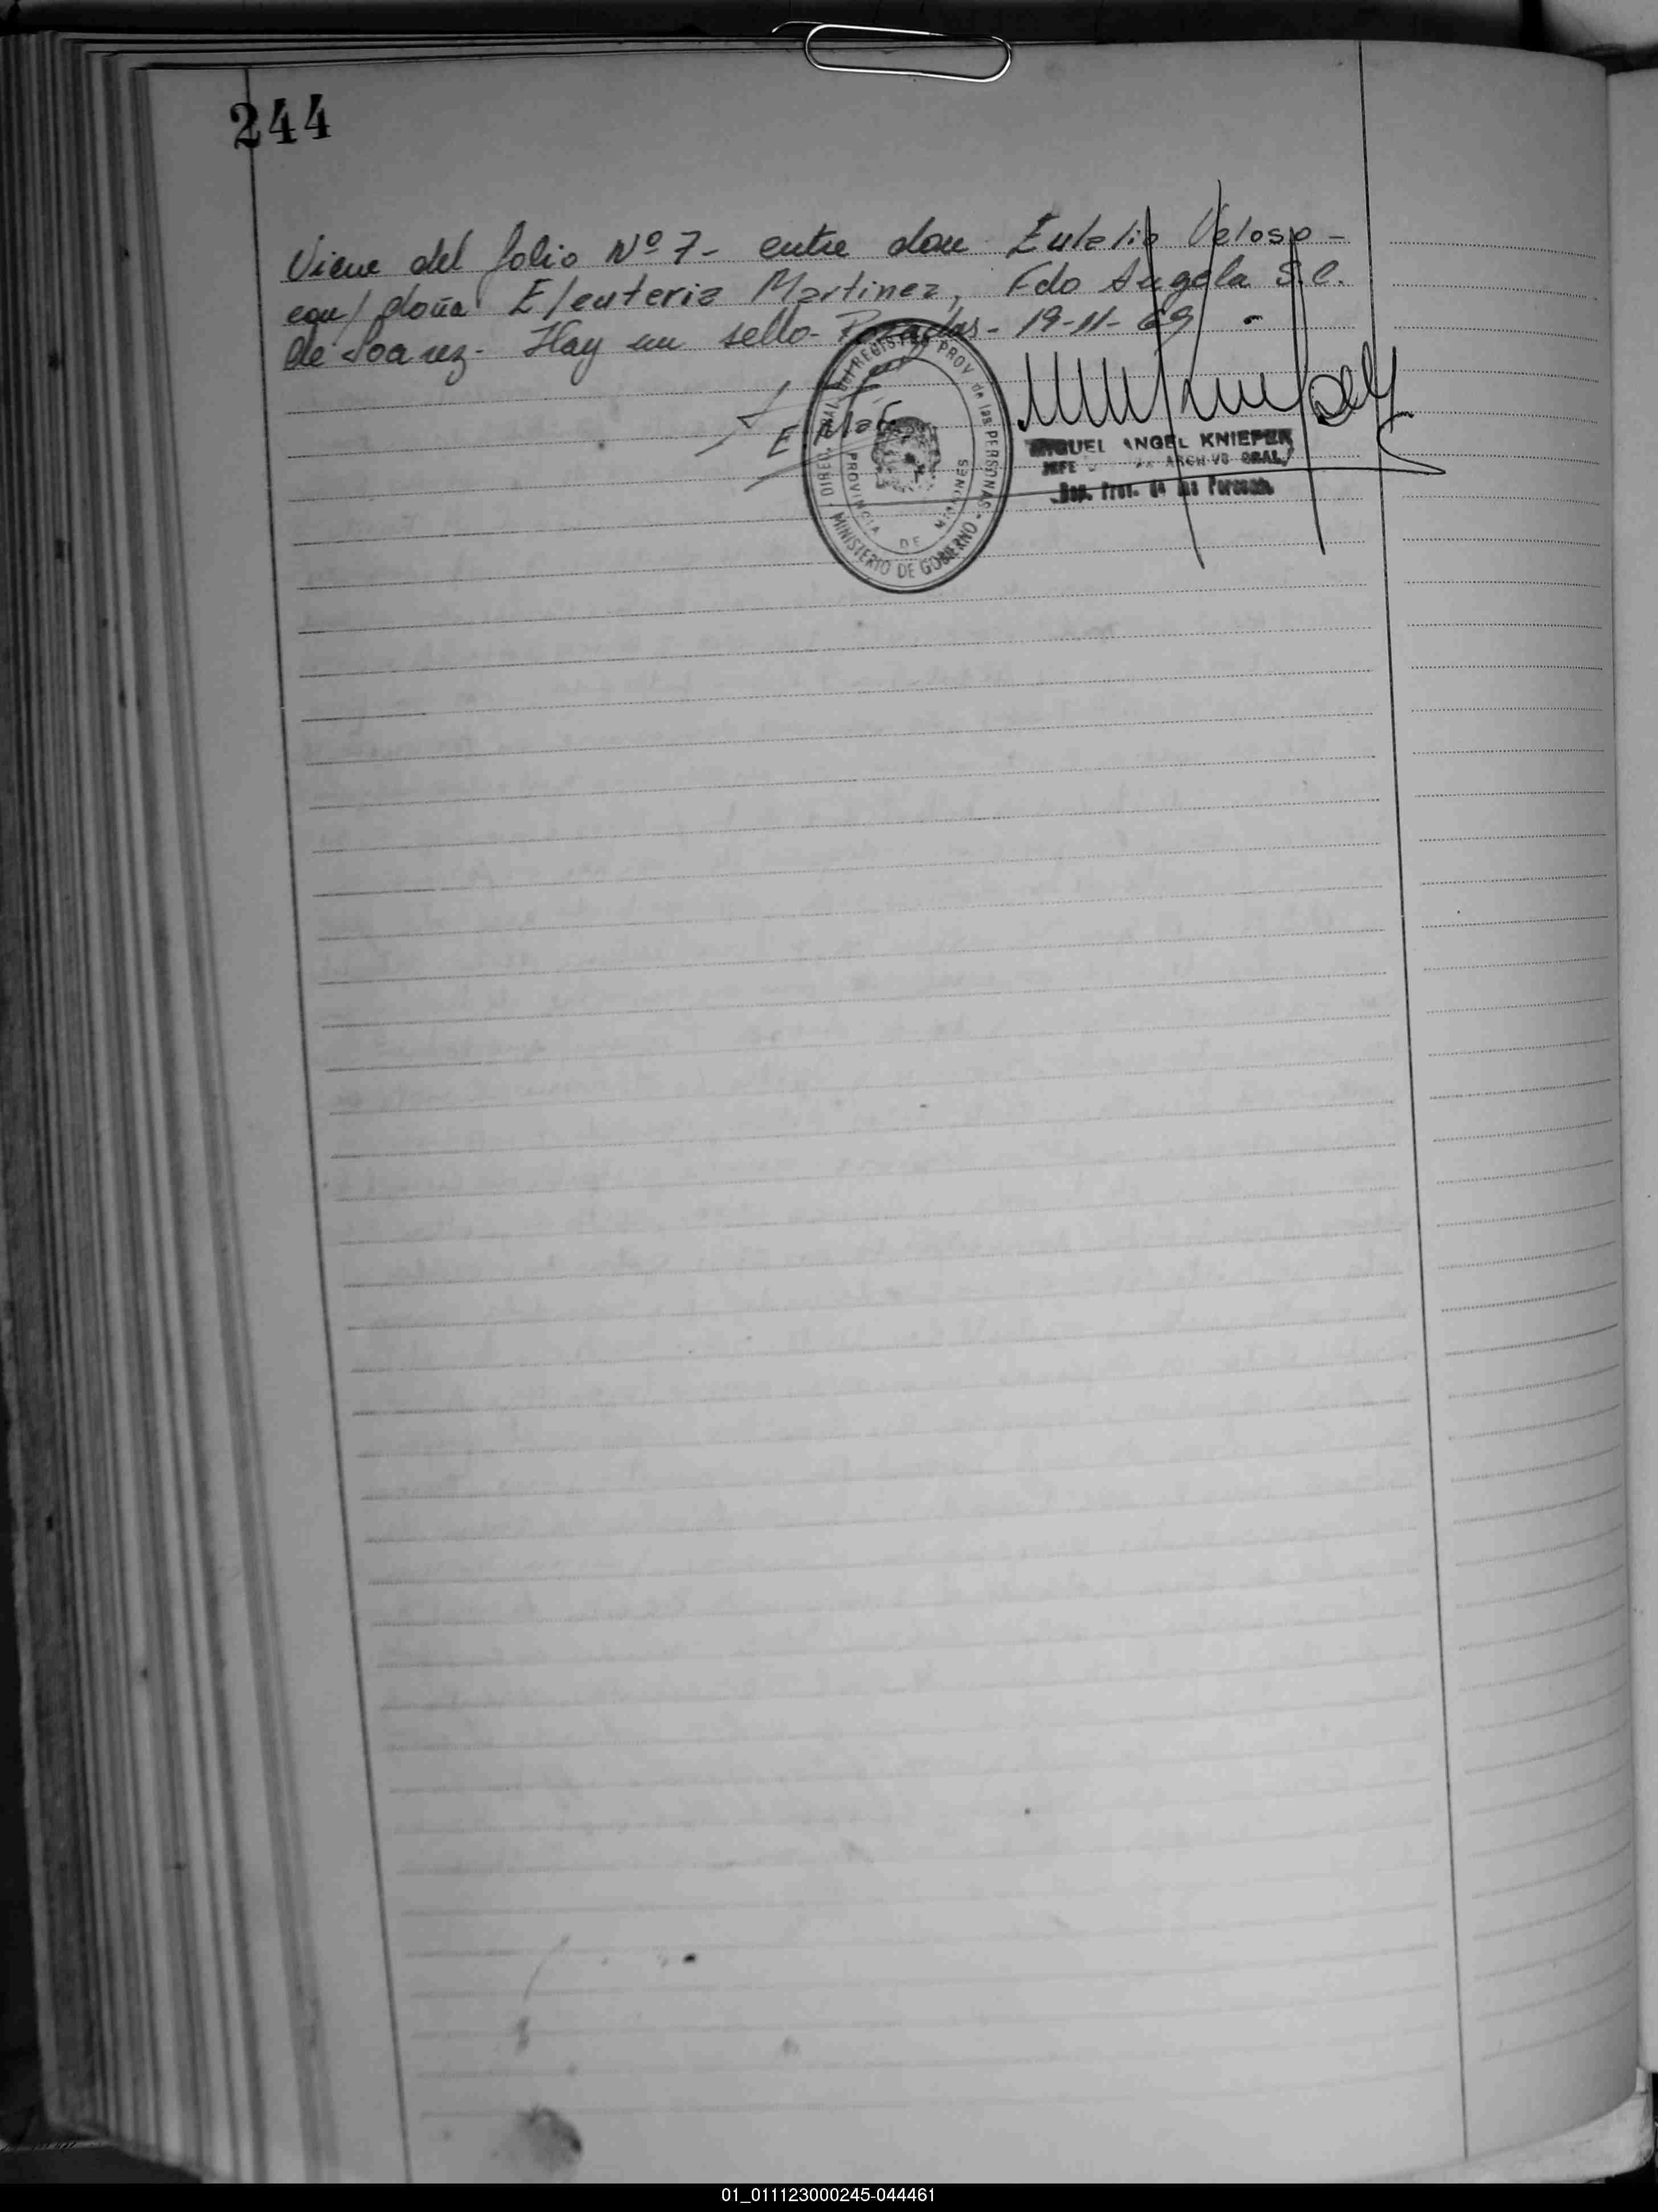 244
Viene del folio Nº 7- entre don Eulalio Veloso-
con/ doña Eleuteria Martinez, Fdo Angela S.C.
de Soarez- Hay un sello- Posadas- 19-11-69
DIREC. GRAL. del REGISTRO PROV. de las PERSONAS
MINISTERIO DE GOBIERNO
PROVINCIA DE MISIONES
MIGUEL ANGEL KNIEPER
JEFE ARCHIVO GRAL.
Prov. de las Personas
01_011123000245-044461